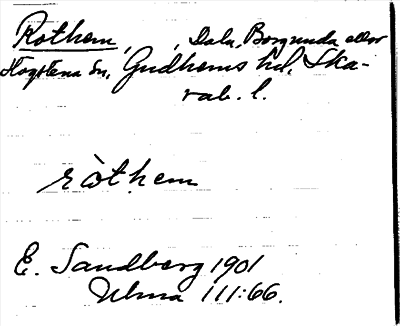 Rothem, , Dala, Borgunda eller
Högstena sn, Gudhems hd, Ska-
rab. l.
ròthem
E. Sandberg 1901
Ulma 111:66.